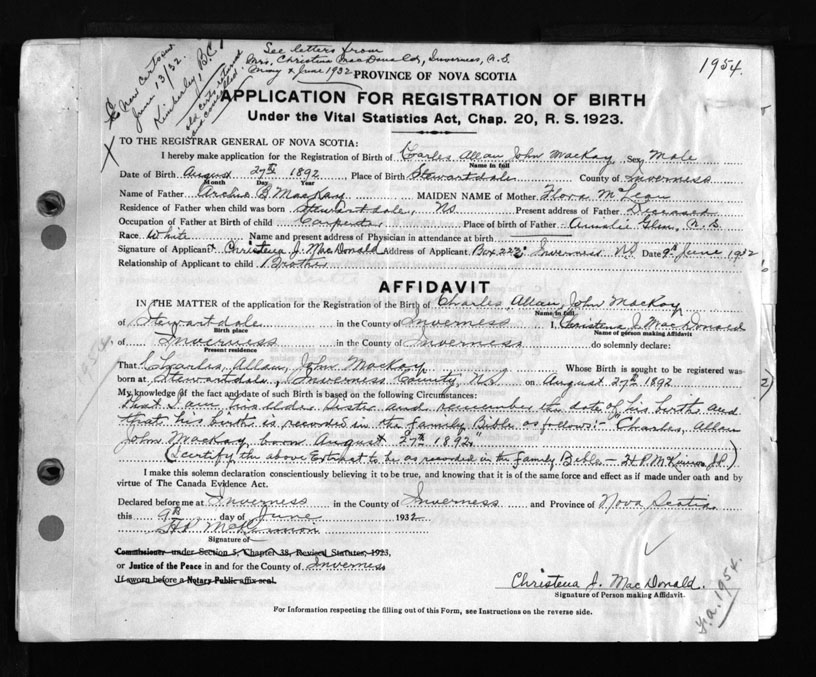 See letters from
Mrs. Christina MacDonald, Inverness, N.S.
May & June 1932
1954.
New Certson
June 13/32.
Kimberley, B.C.
old cert. returned
and cancelled.
PROVINCE OF NOVA SCOTIA
APPLICATION FOR REGISTRATION OF BIRTH
Under the Vital Statistics Act, Chap. 20, R. S. 1923.
X
TO THE REGISTRAR GENERAL OF NOVA SCOTIA:
I hereby make application for the Registration of Birth of Charles Allan John MacKay Sex Male
Name in full
Date of Birth August 27th 1892 Place of Birth Stewartdale County of Inverness
Month Day Year
Name of Father Archie B. MacKay MAIDEN NAME of Mother Flora McLean
Residence of Father when child was born Stewartdale, NS Present address of Father Deceased
Occupation of Father at Birth of child Carpenter Place of birth of Father Ainslie Glen, N.S.
Race White Name and present address of Physician in attendance at birth
Signature of Applicant Christena J. MacDonald Address of Applicant Box 222, Inverness NS Date 9th June 1932
Relationship of Applicant to child Brother
AFFIDAVIT
IN THE MATTER of the application for the Registration of the Birth of Charles, Allan, John MacKay
Name in full
of Stewartdale in the County of Inverness I, Christena J. MacDonald
Birth place Name of person making Affidavit
of Inverness in the County of Inverness do solemnly declare:
Present residence
That Charles, Allan, John MacKay Whose Birth is sought to be registered was
born at Stewartdale, Inverness County, NS on August 27th 1892
My knowledge of the fact and date of such Birth is based on the following Circumstances:
That I am an older sister and remember the date of his birth and
that his birth is recorded in the family Bible as follows:- "Charles, Allan
John MacKay, born August 27th 1892."
(I certify the above Extract to be as recorded in the Family Bible - H P McKinnon JP.)
I make this solemn declaration conscientiously believing it to be true, and knowing that it is of the same force and effect as if made under oath and by
virtue of The Canada Evidence Act.
Declared before me at Inverness in the County of Inverness and Province of Nova Scotia
this 9th day of June 1932
H P McKinnon
Signature of
Commissioner under Section 5, Chapter 38, Revised Statutes, 1923,
or Justice of the Peace in and for the County of Inverness
If sworn before a Notary Public affix seal.
Christena J. MacDonald.
Signature of Person making Affidavit.
For Information respecting the filling out of this Form, see Instructions on the reverse side.
1954.